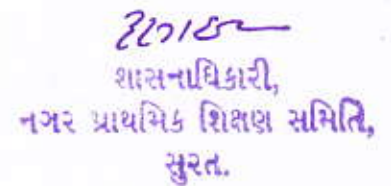 શાસનાધિકારી,
નગર પ્રાથમિક શિક્ષણ સમિતિ,
સુરત.